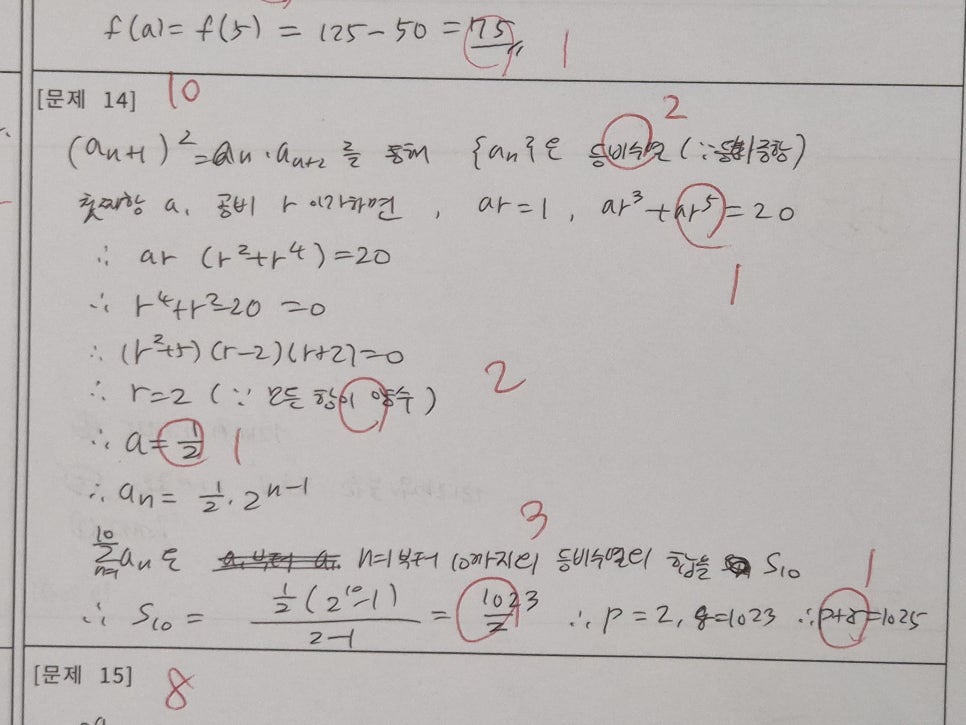 f(a) = f(5) = 125 - 50 = 75 1
[문제 14] 10
2
(an+1)² = an · an+2 를 통해 {an}은 등비수열 (∵ 등비중항)
첫째항 a, 공비 r 이라하면, ar = 1, ar³ + ar⁵ = 20
1
∴ ar (r² + r⁴) = 20
∴ r⁴ + r² - 20 = 0
∴ (r² + 5)(r - 2)(r + 2) = 0
∴ r = 2 (∵ 모든 항이 양수) 2
∴ a = 1/2 1
∴ an = 1/2 · 2ⁿ⁻¹
3
10 Σ n=1 an 은 n=1부터 10까지의 등비수열의 합을 S10 1
∴ S10 = 1/2 (2¹⁰ - 1) / 2 - 1 = 1023/2 ∴ p = 2, q = 1023 ∴ p + q = 1025
[문제 15] 8